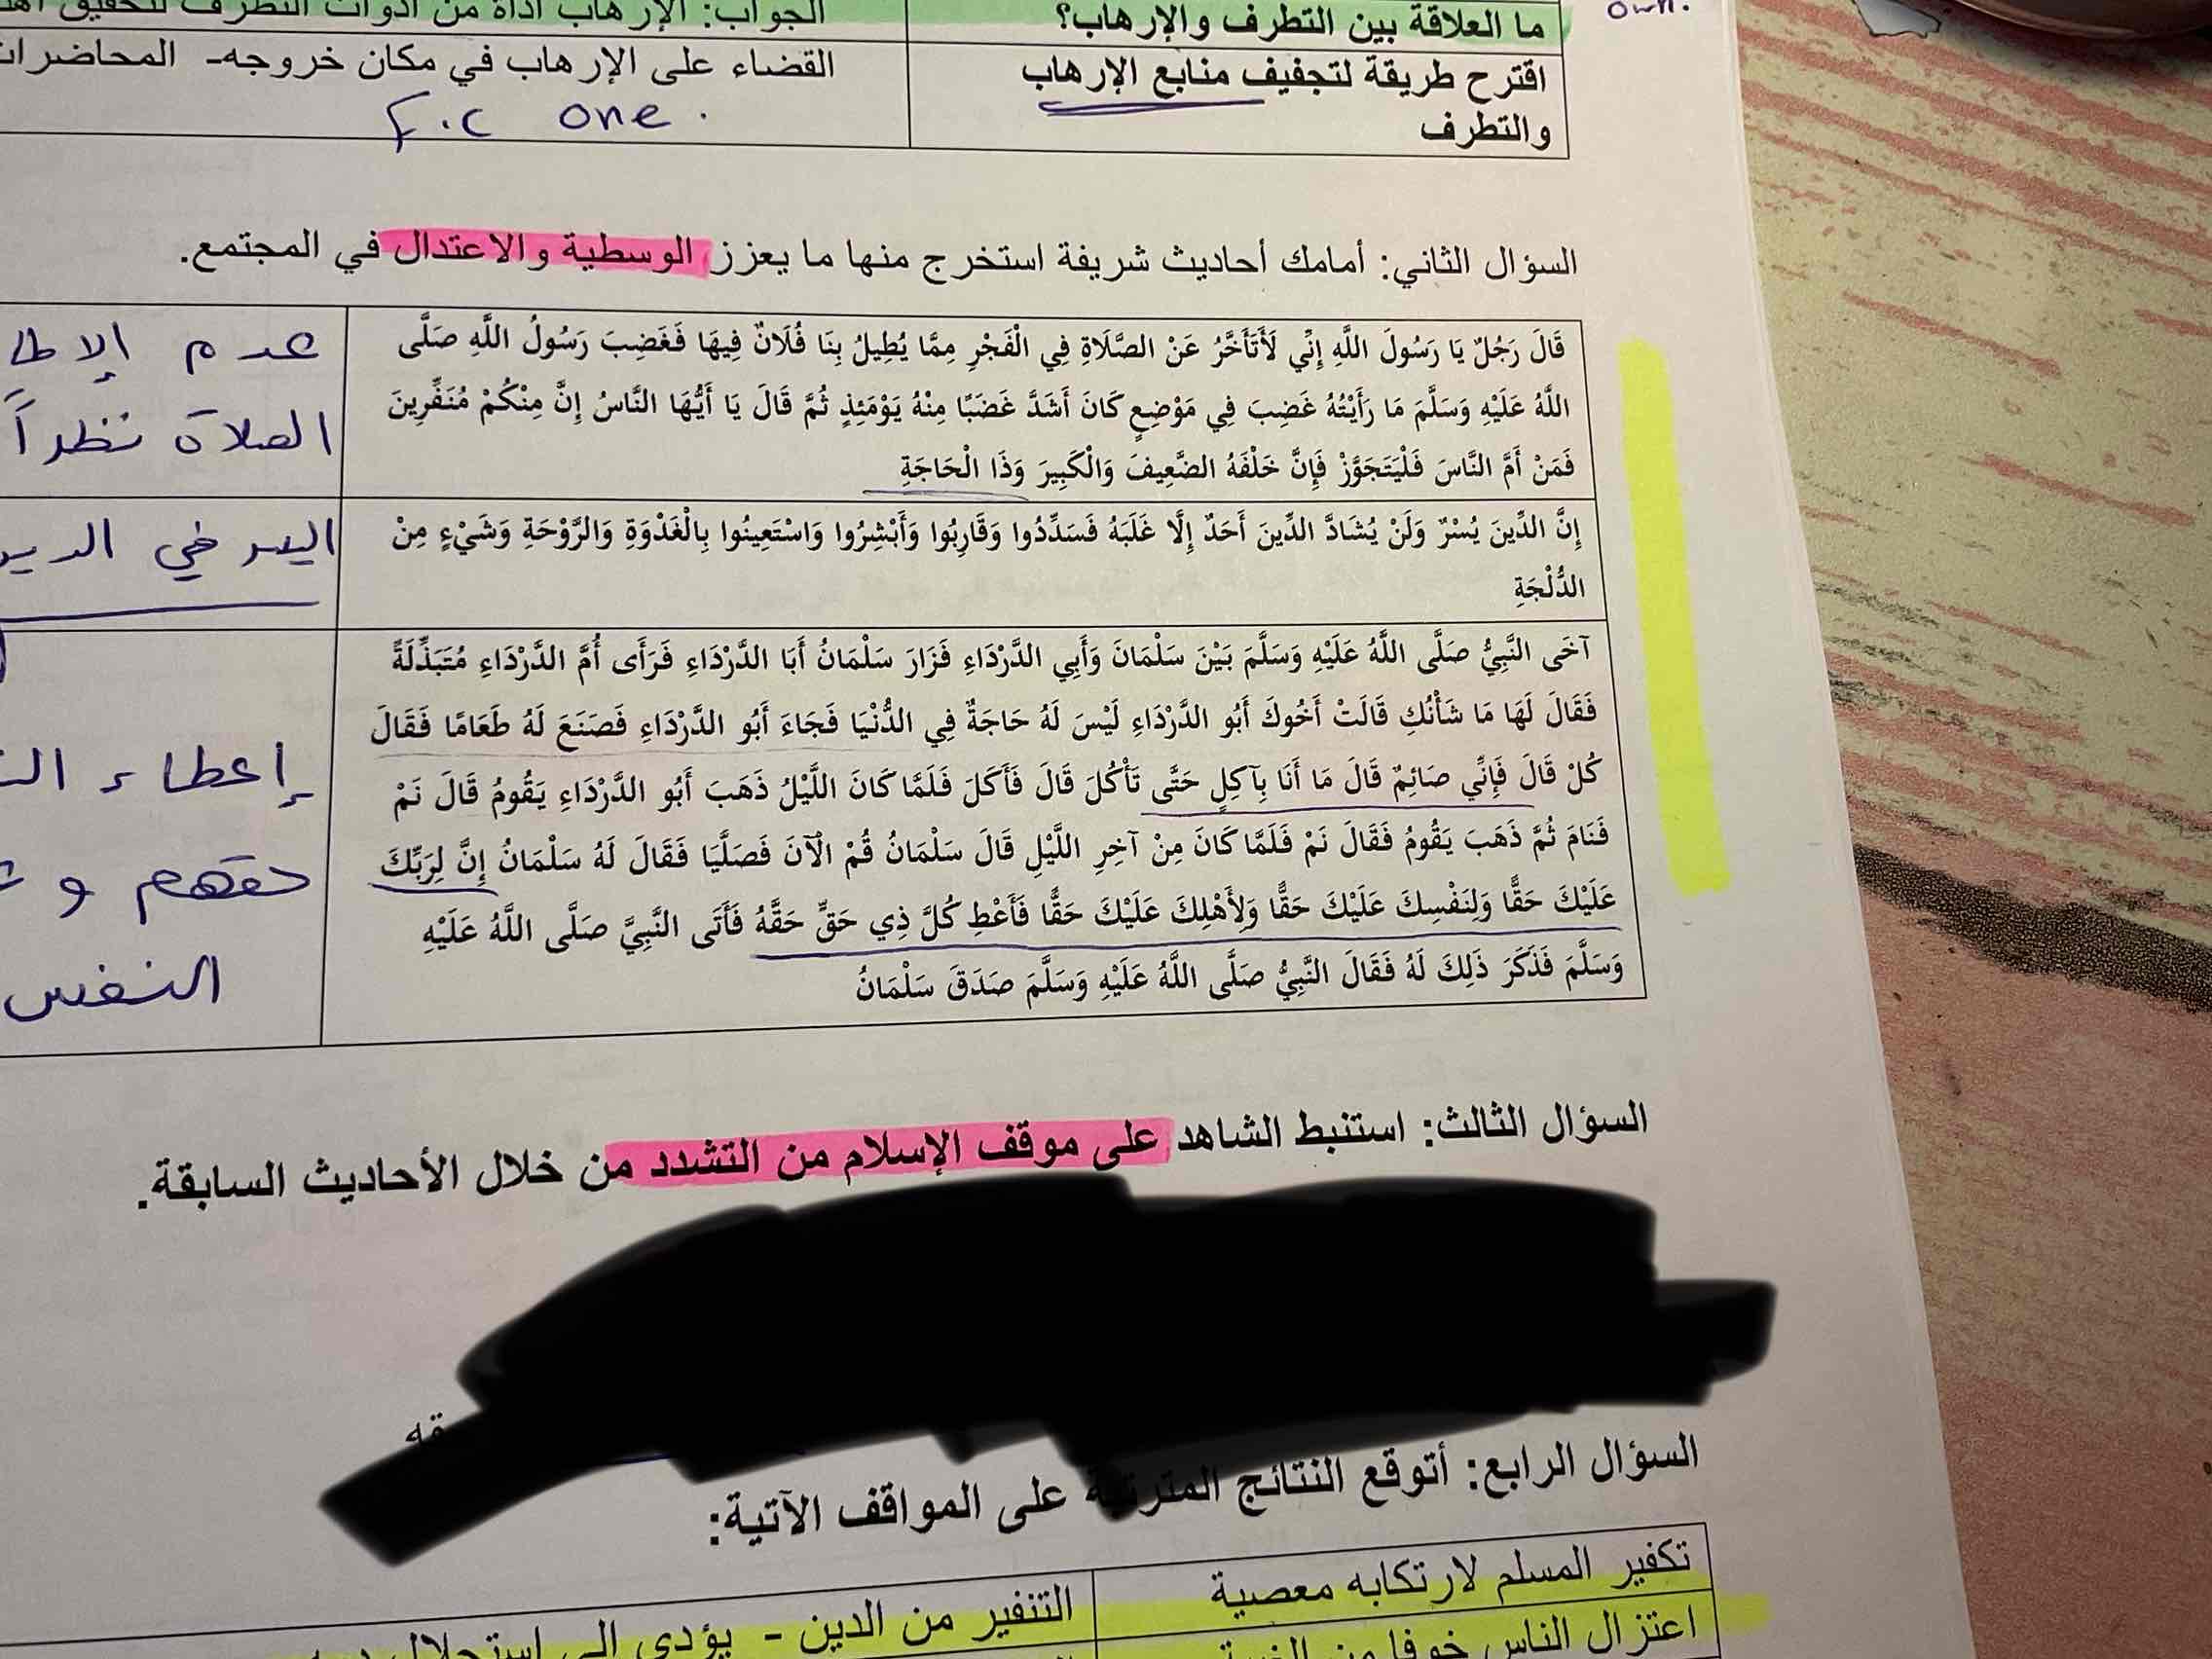 own.
ما العلاقة بين التطرف والإرهاب؟
الجواب: الإرهاب أداة من أدوات التطرف لتحقيق
اقترح طريقة لتجفيف منابع الإرهاب
والتطرف
القضاء على الإرهاب في مكان خروجه- المحاضرات
F.C one.
السؤال الثاني: أمامك أحاديث شريفة استخرج منها ما يعزز الوسطية والاعتدال في المجتمع.
قَالَ رَجُلٌ يَا رَسُولَ اللَّهِ إِنِّي لَأَتَأَخَّرُ عَنْ الصَّلَاةِ فِي الْفَجْرِ مِمَّا يُطِيلُ بِنَا فُلَانٌ فِيهَا فَغَضِبَ رَسُولُ اللَّهِ صَلَّى
اللَّهُ عَلَيْهِ وَسَلَّمَ مَا رَأَيْتُهُ غَضِبَ فِي مَوْضِعٍ كَانَ أَشَدَّ غَضَبًا مِنْهُ يَوْمَئِذٍ ثُمَّ قَالَ يَا أَيُّهَا النَّاسُ إِنَّ مِنْكُمْ مُنَفِّرِينَ
فَمَنْ أَمَّ النَّاسَ فَلْيَتَجَوَّزْ فَإِنَّ خَلْفَهُ الضَّعِيفَ وَالْكَبِيرَ وَذَا الْحَاجَةِ
عدم
الصلاة نظراً
إِنَّ الدِّينَ يُسْرٌ وَلَنْ يُشَادَّ الدِّينَ أَحَدٌ إِلَّا غَلَبَهُ فَسَدِّدُوا وَقَارِبُوا وَأَبْشِرُوا وَاسْتَعِينُوا بِالْغَدْوَةِ وَالرَّوْحَةِ وَشَيْءٍ مِنْ
الدُّلْجَةِ
اليسر في
آخَى النَّبِيُّ صَلَّى اللَّهُ عَلَيْهِ وَسَلَّمَ بَيْنَ سَلْمَانَ وَأَبِي الدَّرْدَاءِ فَزَارَ سَلْمَانُ أَبَا الدَّرْدَاءِ فَرَأَى أُمَّ الدَّرْدَاءِ مُتَبَذِّلَةً
فَقَالَ لَهَا مَا شَأْنُكِ قَالَتْ أَخُوكَ أَبُو الدَّرْدَاءِ لَيْسَ لَهُ حَاجَةٌ فِي الدُّنْيَا فَجَاءَ أَبُو الدَّرْدَاءِ فَصَنَعَ لَهُ طَعَامًا فَقَالَ
كُلْ قَالَ فَإِنِّي صَائِمٌ قَالَ مَا أَنَا بِآكِلٍ حَتَّى تَأْكُلَ قَالَ فَأَكَلَ فَلَمَّا كَانَ اللَّيْلُ ذَهَبَ أَبُو الدَّرْدَاءِ يَقُومُ قَالَ نَمْ
فَنَامَ ثُمَّ ذَهَبَ يَقُومُ فَقَالَ نَمْ فَلَمَّا كَانَ مِنْ آخِرِ اللَّيْلِ قَالَ سَلْمَانُ قُمْ الْآنَ فَصَلَّيَا فَقَالَ لَهُ سَلْمَانُ إِنَّ لِرَبِّكَ
عَلَيْكَ حَقًّا وَلِنَفْسِكَ عَلَيْكَ حَقًّا وَلِأَهْلِكَ عَلَيْكَ حَقًّا فَأَعْطِ كُلَّ ذِي حَقٍّ حَقَّهُ فَأَتَى النَّبِيَّ صَلَّى اللَّهُ عَلَيْهِ
وَسَلَّمَ فَذَكَرَ ذَلِكَ لَهُ فَقَالَ النَّبِيُّ صَلَّى اللَّهُ عَلَيْهِ وَسَلَّمَ صَدَقَ سَلْمَانُ
إعطاء
حقهم و
النفس
السؤال الثالث: استنبط الشاهد على موقف الإسلام من التشدد من خلال الأحاديث السابقة.
السؤال الرابع: أتوقع النتائج المترتبة على المواقف الآتية:
تكفير المسلم لارتكابه معصية
التنفير من الدين - يؤدي الى استحلال
اعتزال الناس خوفا من